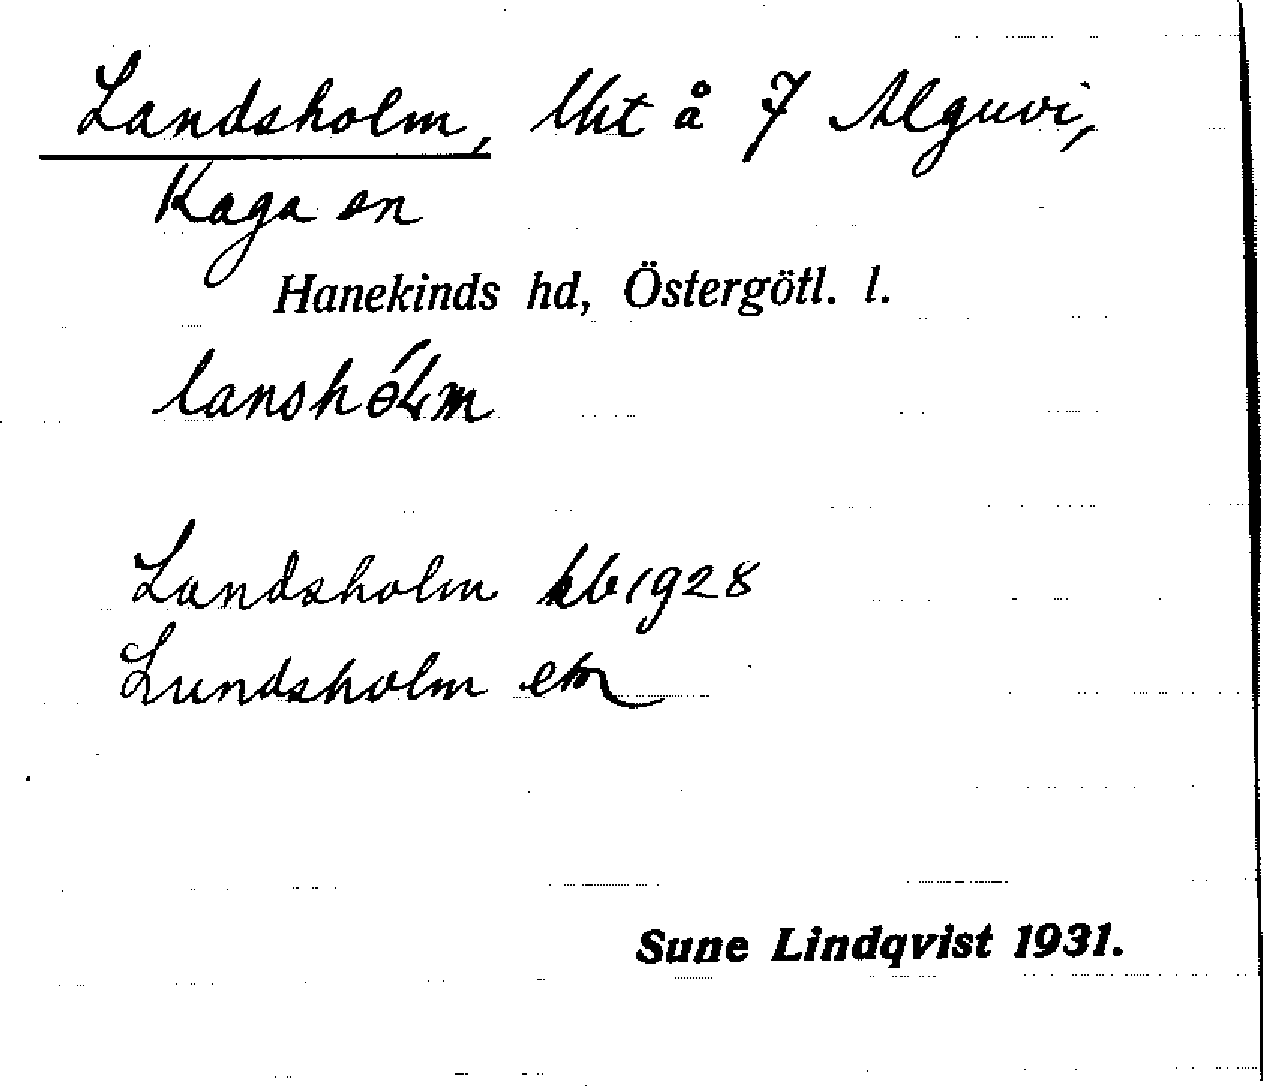 Landsholm, lht å 7 Alguvi,
Kaga sn
Hanekinds hd, Östergötl. l.
Landsholm kb 1928
Lundsholm
Sune Lindqvist 1931.